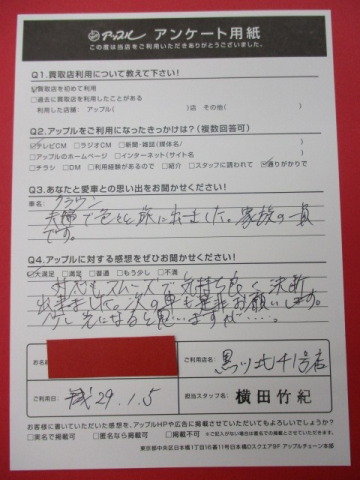 アップル アンケート用紙
この度は当店をご利用いただきありがとうございました。
Q1.買取店利用について教えて下さい!
☑買取店を初めて利用
□過去に買取店を利用したことがある
利用した店舗: アップル( )店 その他( )
Q2.アップルをご利用になったきっかけは?(複数回答可)
☑テレビCM □ラジオCM □新聞・雑誌(媒体名/ )
□アップルのホームページ □インターネット(サイト名 )
□チラシ □DM □利用経験があるので □紹介 □スタッフに誘われて ☑通りがかりで
Q3.あなたと愛車との思い出をお聞かせください!
車名: クラウン
夫婦で色々と旅に出ました。家族の一員
です。
Q4.アップルに対する感想をぜひお聞かせください!
☑大満足 □満足 □普通 □もう少し □不満
対応もスムーズで気持ち良く決断
出来ました。次の車も是非お願いします。
少し先になると思いますが……。
お名前
ご利用店名: 黒川北41号店
ご利用日: 29.1.5
担当スタッフ名: 横田竹紀
お客様に書いていただいた感想を、アップルHPや広告に掲載させていただいてもよろしいでしょうか?
□実名で掲載可 □匿名なら掲載可 □掲載不可 ※ご記入がない場合は匿名での掲載とさせていただきます。
東京都中央区日本橋1丁目16番11号日本橋Dスクエア9F アップルチェーン本部